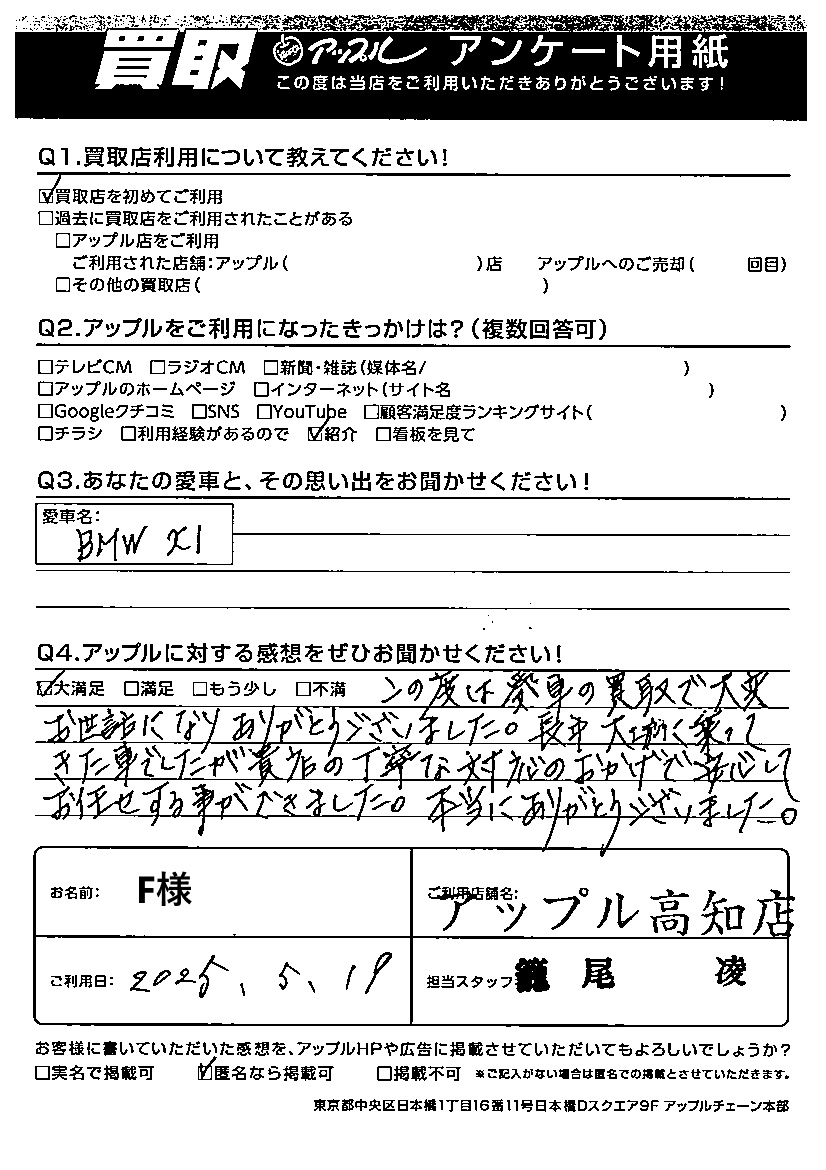 買取 アップル アンケート用紙
この度は当店をご利用いただきありがとうございます!
Q1.買取店利用について教えてください!
☑買取店を初めてご利用
□過去に買取店をご利用されたことがある
□アップル店をご利用
ご利用された店舗:アップル( )店 アップルへのご売却( 回目)
□その他の買取店( )
Q2.アップルをご利用になったきっかけは?(複数回答可)
□テレビCM □ラジオCM □新聞・雑誌(媒体名/ )
□アップルのホームページ □インターネット(サイト名 )
□Googleクチコミ □SNS □YouTube □顧客満足度ランキングサイト( )
□チラシ □利用経験があるので ☑紹介 □看板を見て
Q3.あなたの愛車と、その思い出をお聞かせください!
愛車名:
BMW X1
Q4.アップルに対する感想をぜひお聞かせください!
☑大満足 □満足 □もう少し □不満 この度は愛車の買取で大変
お世話になりありがとうございました。長年大切に乗って
きた車でしたが貴店の丁寧な対応のおかげで安心して
お任せする事ができました。本当にありがとうございました。
お名前: F様 ご利用店舗名: アップル高知店
ご利用日: 2025、5、19 担当スタッフ: 尾 凌
お客様に書いていただいた感想を、アップルHPや広告に掲載させていただいてもよろしいでしょうか?
□実名で掲載可 ☑匿名なら掲載可 □掲載不可 ※ご記入がない場合は匿名での掲載とさせていただきます。
東京都中央区日本橋1丁目16番11号日本橋Dスクエア9F アップルチェーン本部